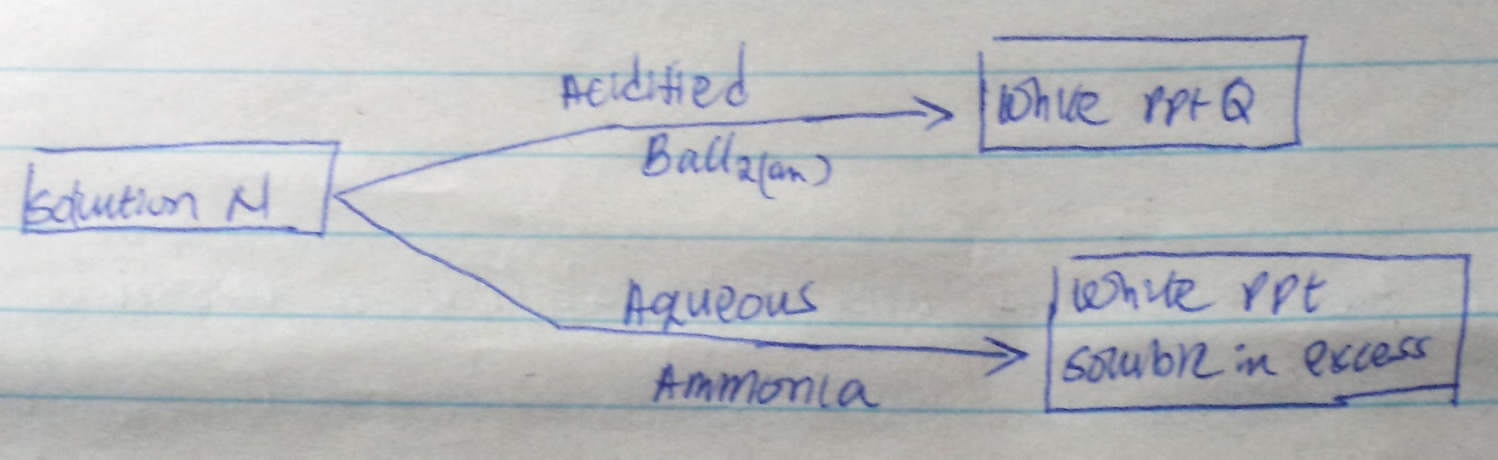 Solution N
Acidified
BaCl2(aq)
White ppt Q
Aqueous
Ammonia
White ppt
soluble in excess